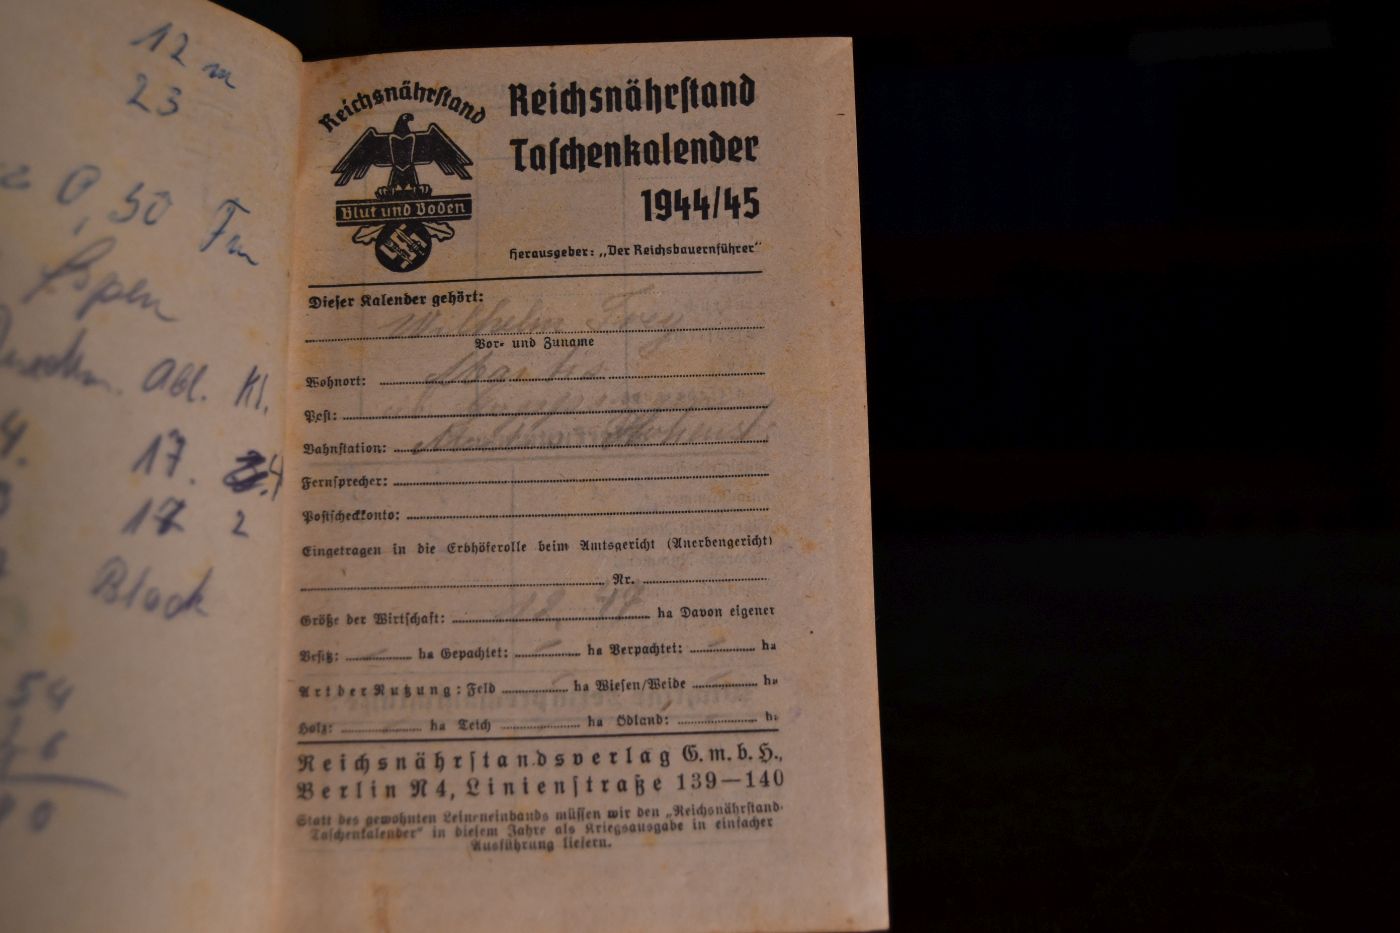 12 m
23
0,50 Fm
Abl. Kl.
4. 17. 4
17 2
Block
54
Reichsnährstand
Blut und Boden
Reichsnährstand
Taschenkalender
1944/45
Herausgeber: „Der Reichsbauernführer“
Dieser Kalender gehört:
Wilhelm Frey
Vor- und Zuname
Wohnort:
Post:
Bahnstation:
Fernsprecher:
Postscheckkonto:
Eingetragen in die Erbhöferolle beim Amtsgericht (Anerbengericht)
Nr.
Größe der Wirtschaft: ha Davon eigener
Besitz: ha Gepachtet: ha Verpachtet: ha
Art der Nutzung: Feld ha Wiesen/Weide ha
Holz: ha Teich ha Ödland: h.
Reichsnährstandsverlag G.m.b.H.,
Berlin N 4, Linienstraße 139—140
Statt des gewohnten Leineneinbands müssen wir den „Reichsnährstand-
Taschenkalender“ in diesem Jahre als Kriegsausgabe in einfacher
Ausführung liefern.